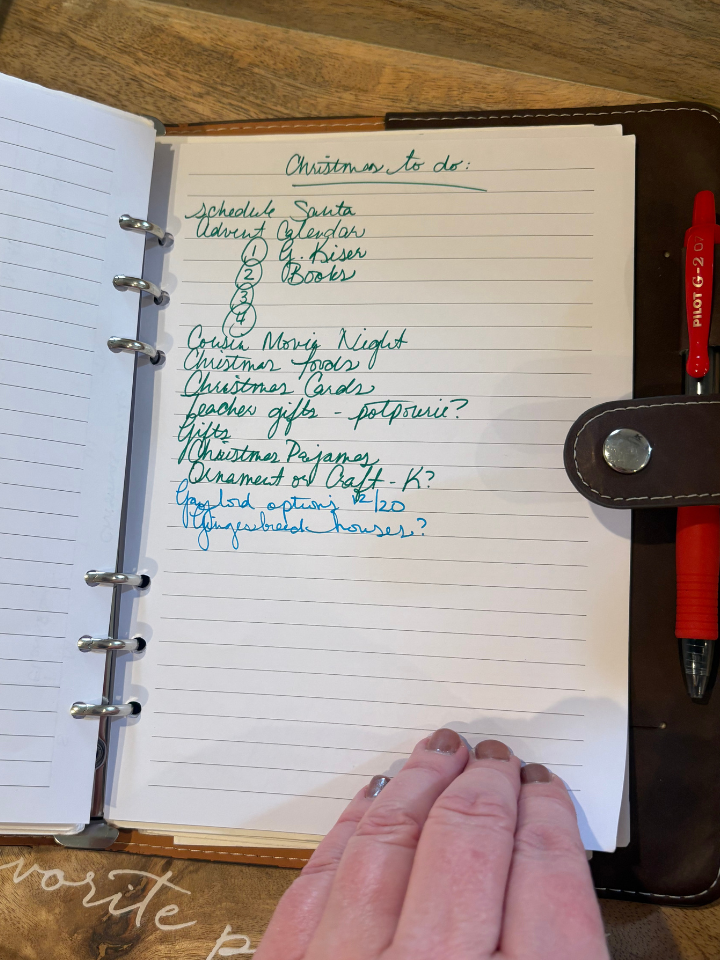 Christmas to do:
schedule Santa
Advent Calendar
1 G. Kiser
2 Books
3
4
Cousin Movie Night
Christmas foods
Christmas Cards
teacher gifts - potpourie?
Gifts
Christmas Pajamas
Ornament or Craft - K?
Gaylord options 12/20
Gingerbread houses?
PILOT G-2 07
vorite p